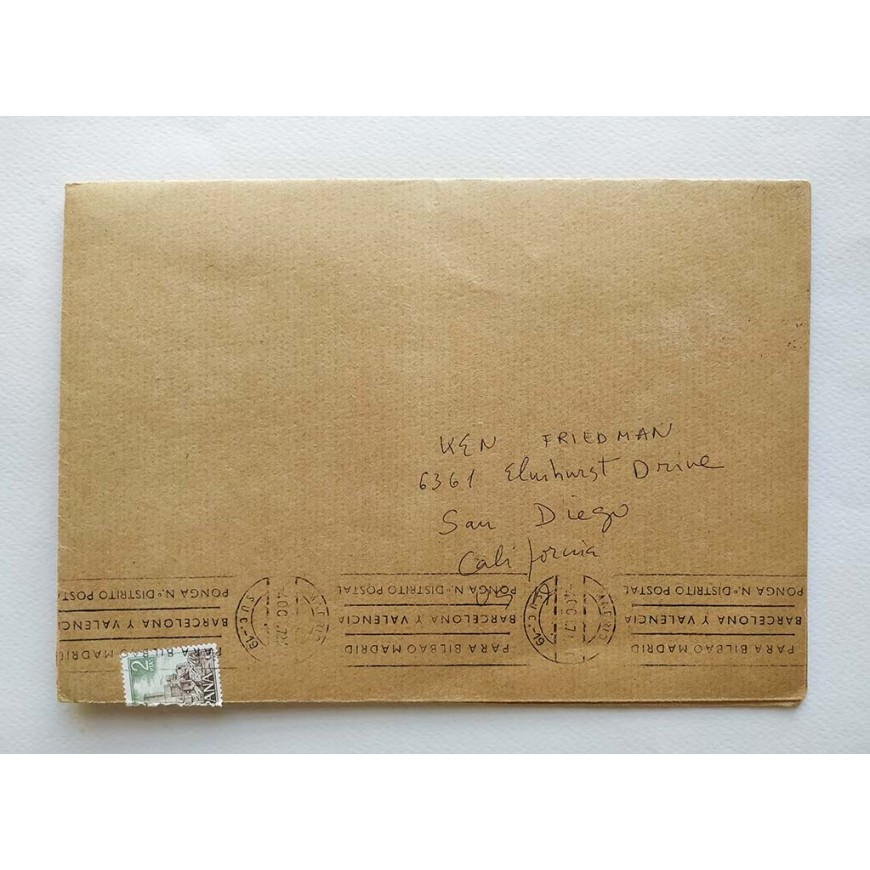 KEN FRIEDMAN
6361 Elmhurst Drive
San Diego
California
PARA BILBAO MADRID
BARCELONA Y VALENCIA
PONGA N.º DISTRITO POSTAL
SUC.-19
PARA BILBAO MADRID
BARCELONA Y VALENCIA
PONGA N.º DISTRITO POSTAL
SUC.-19
PARA BILBAO MADRID
BARCELONA Y VALENCIA
PONGA N.º DISTRITO POSTAL
2
PTAS